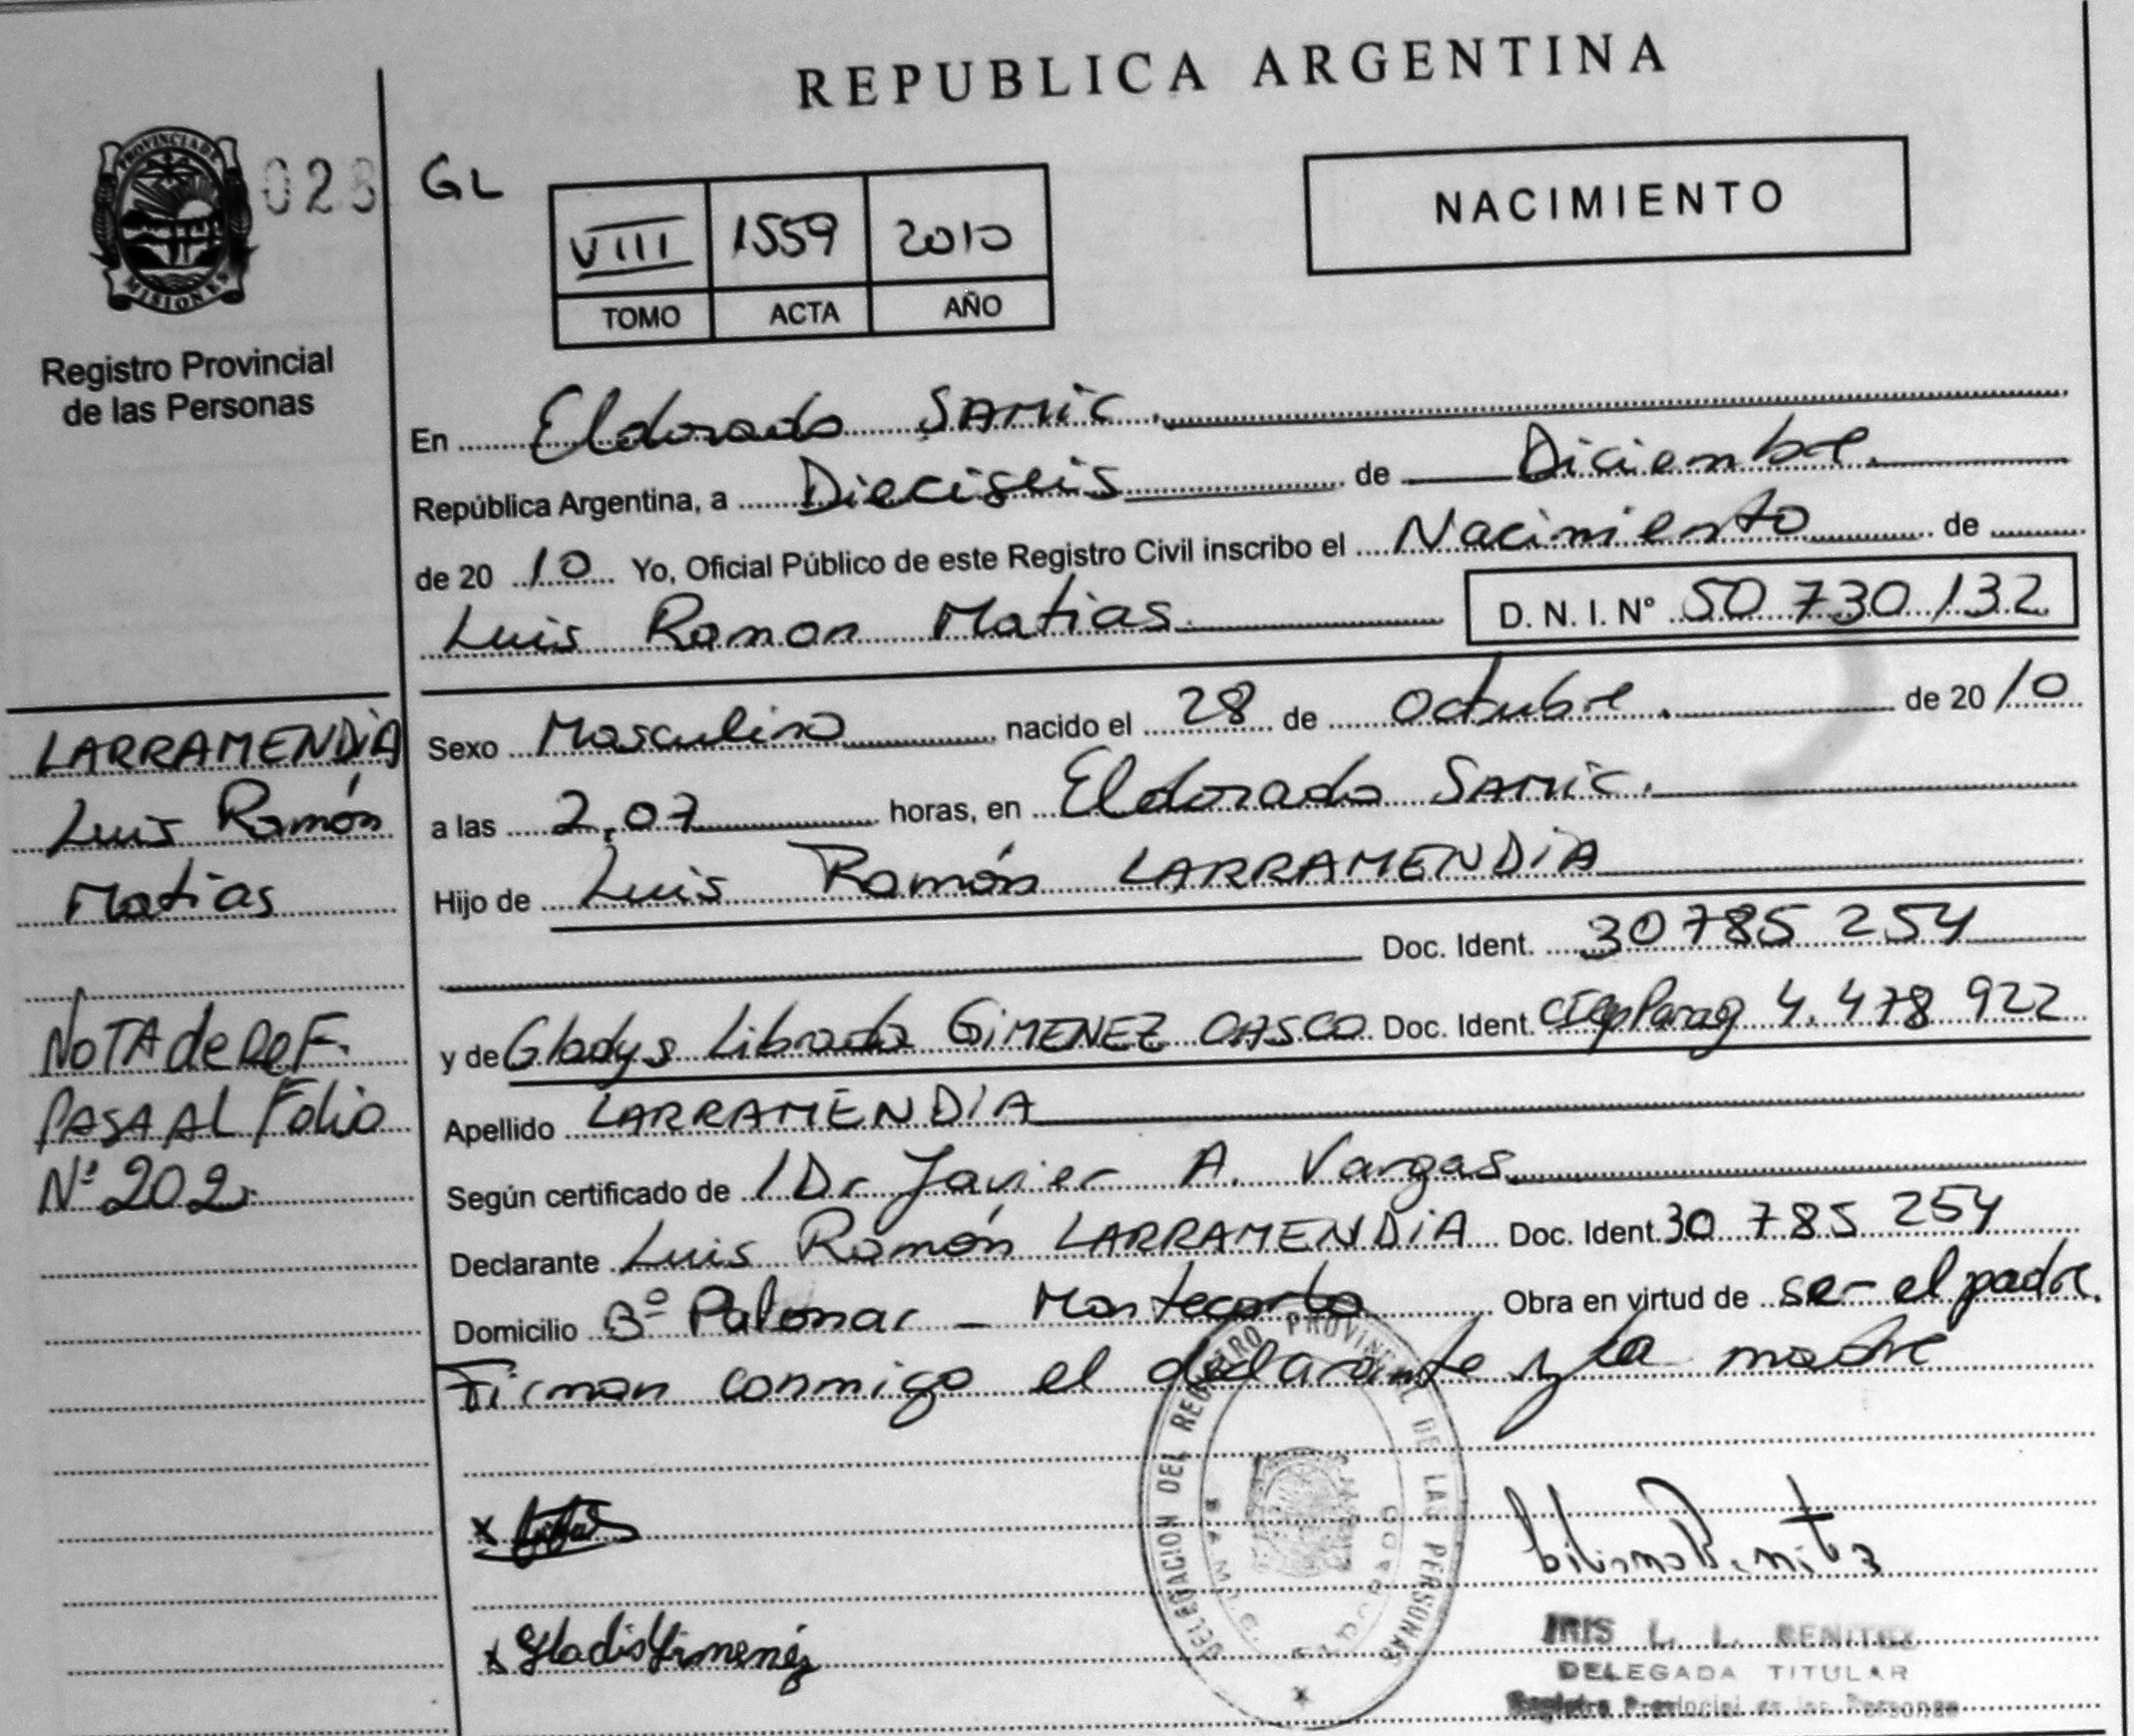 REPUBLICA ARGENTINA
PROVINCIA DE
MISIONES
028
GL
VIII 1559 2010
TOMO ACTA AÑO
NACIMIENTO
Registro Provincial
de las Personas
En Eldorado SAMIC.
República Argentina, a Dieciseis de Diciembre.
de 20 10 Yo, Oficial Público de este Registro Civil inscribo el Nacimiento de
Luis Ramon Matias D. N. I. N° 50 730 132
LARRAMENDIA
Luis Ramón
Matias
Sexo Masculino nacido el 28 de Octubre. de 20 10
a las 2,07 horas, en Eldorado SAMIC.
Hijo de Luis Ramón LARRAMENDIA
Doc. Ident. 30 785 254
y de Gladys Librada GIMENEZ CASCO Doc. Ident. Parag 4.478 922
NOTA de REF.
PASA AL Folio
N° 202
Apellido LARRAMENDIA
Según certificado de Dr Javier A. Vargas
Declarante Luis Ramón LARRAMENDIA Doc. Ident. 30 785 254
Domicilio B° Palomar - Montecarlo Obra en virtud de ser el padre.
Firman conmigo el declarante y la madre
DELEGACION DEL REGISTRO PROVINCIAL DE LAS PERSONAS
ELDORADO
x
x Gladis Gimenéz
IRIS L. L. BENITEZ
DELEGADA TITULAR
Registro Provincial de las Personas